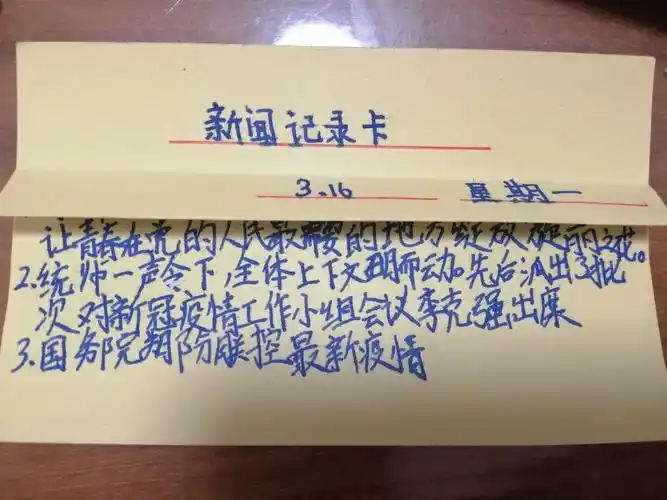 新闻记录卡
3.16 星期一
让青春在党的人民最需要的地方绽放绚丽之花。
2.统帅一声令下,全体上下文明而动。先后派出3批
次对新冠疫情工作小组会议李克强出席
3.国务院期防联控最新疫情